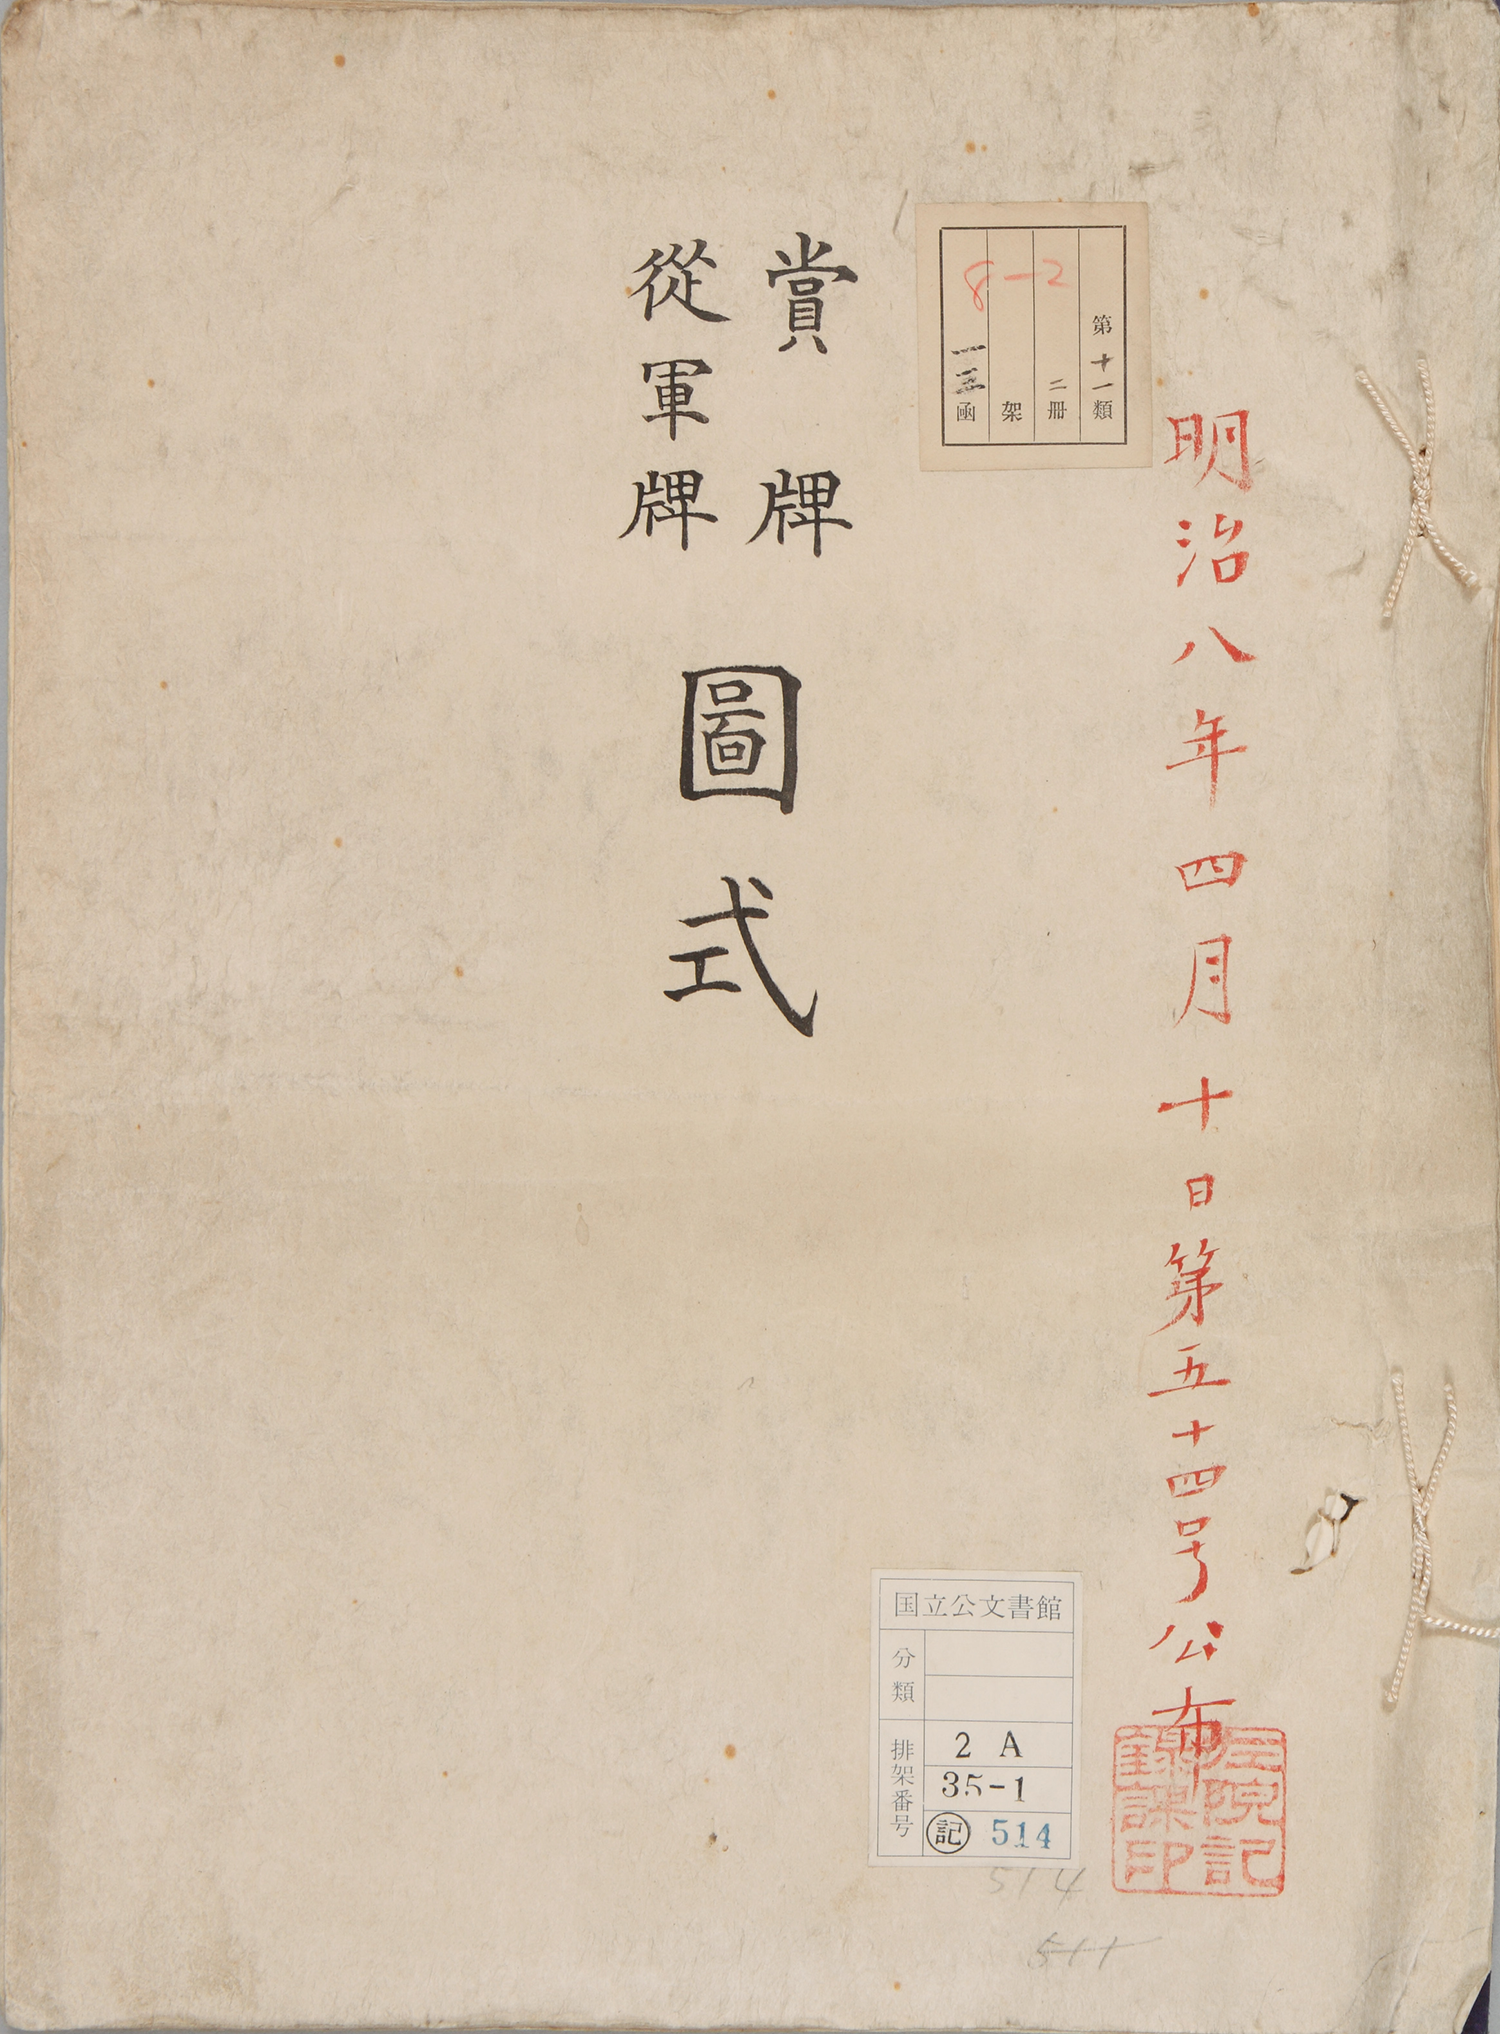 明治八年四月十日第五十四号公布
左院記
録課印
第十一類
二冊
架
一三函
8-2
賞牌
從軍牌
圖式
国立公文書館
分類
排架番号
2 A
35-1
記 514
514
511